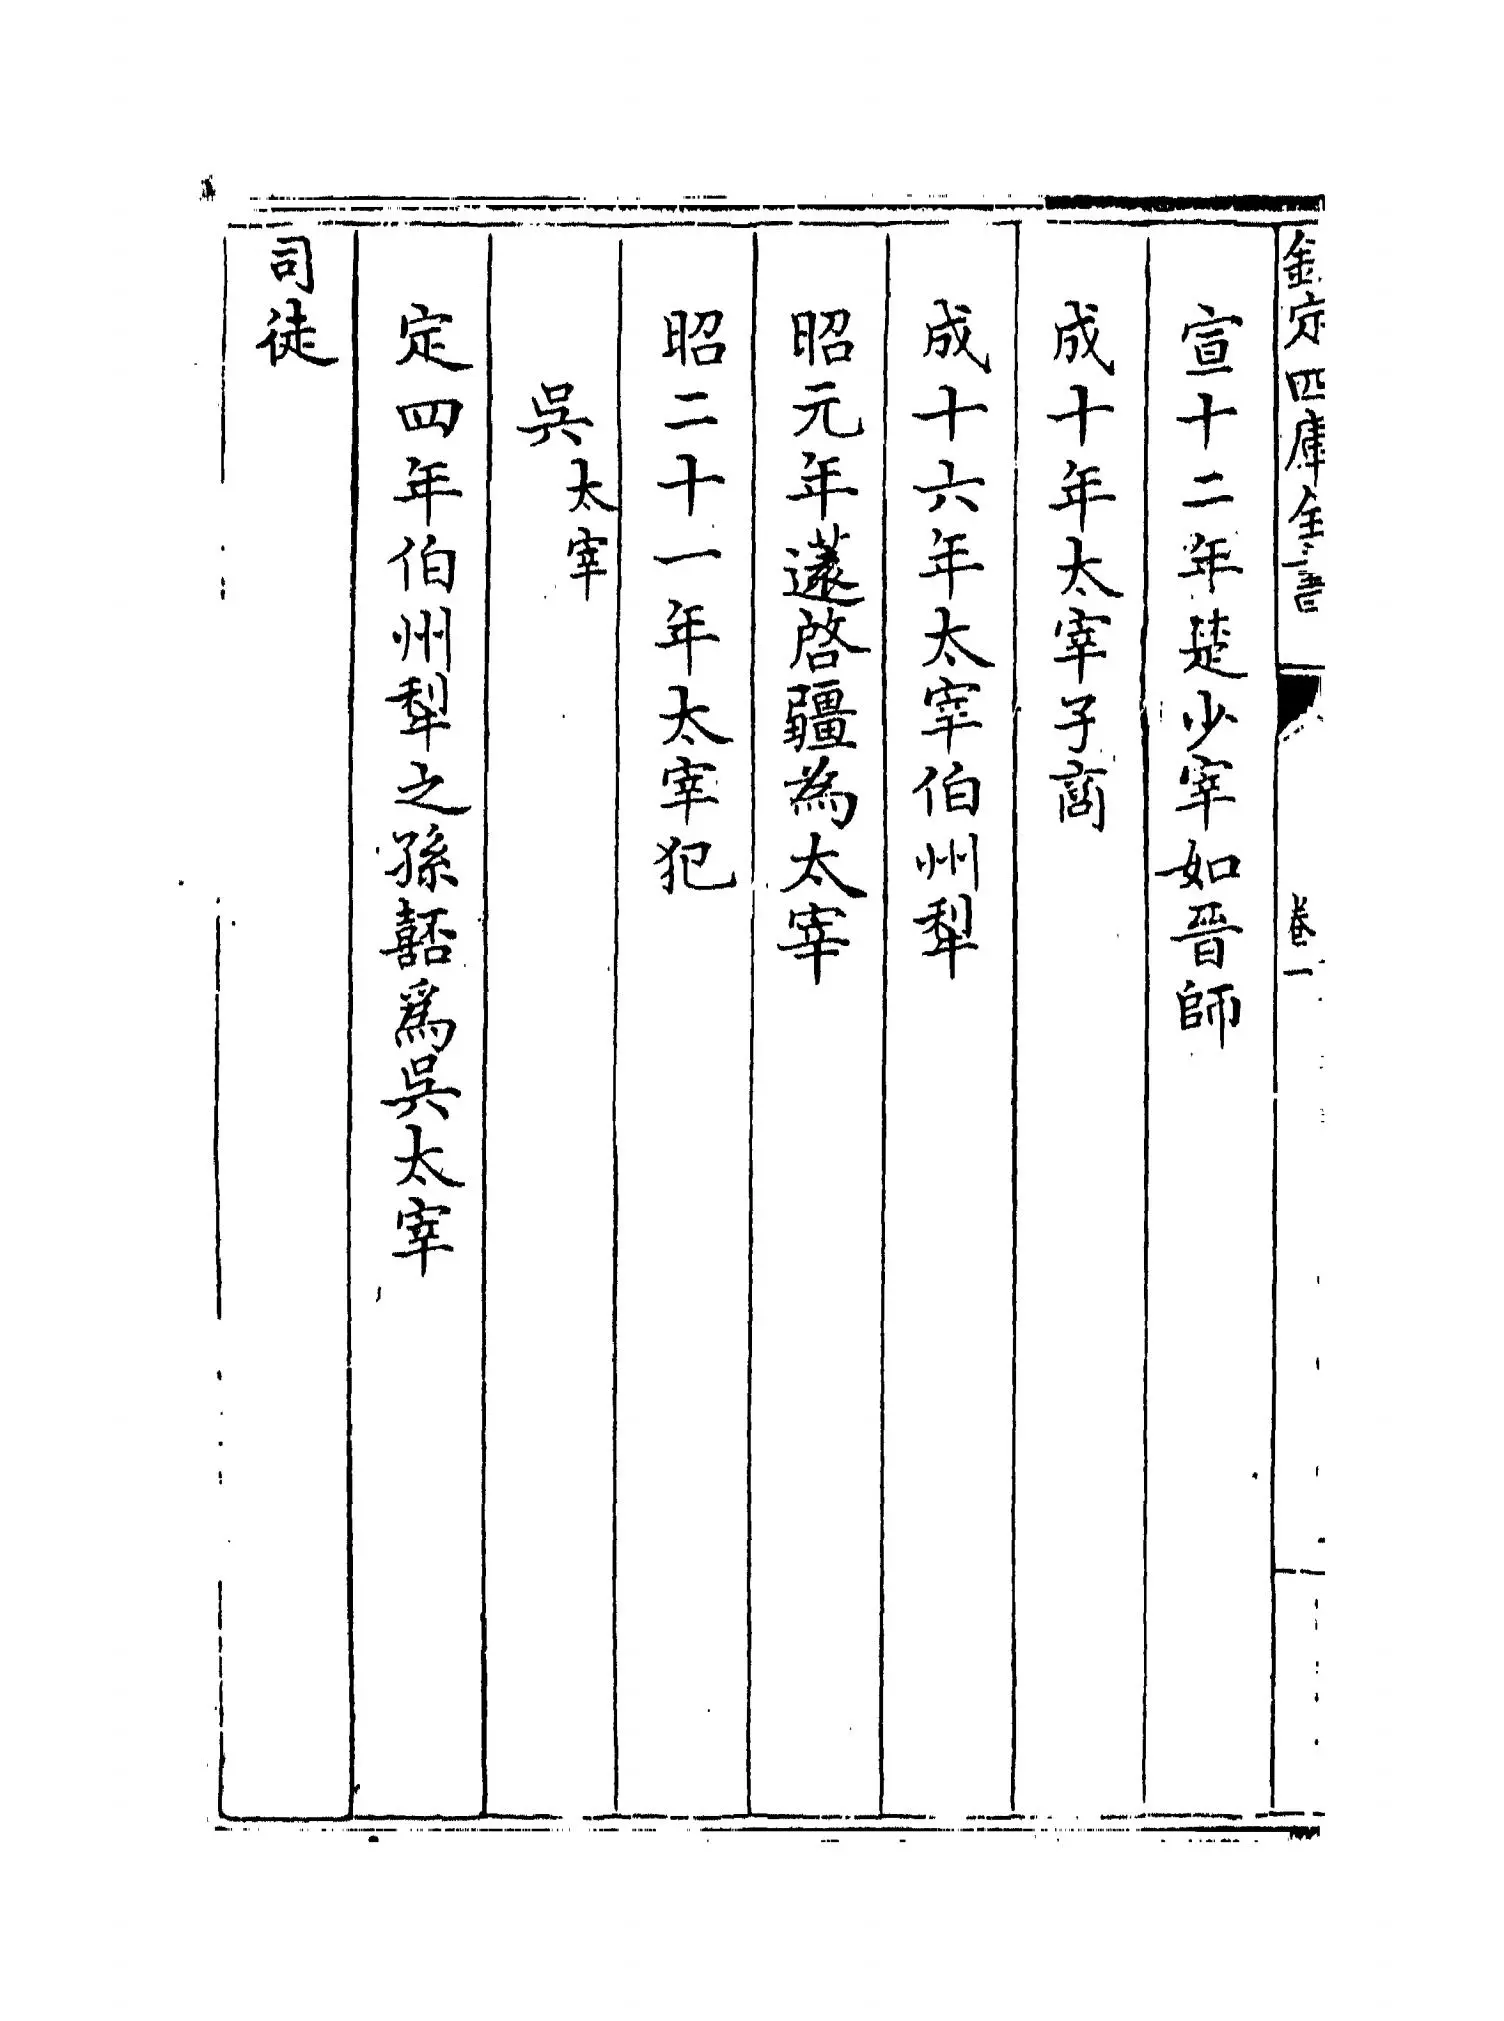 欽定四庫全書
卷一
宣十二年楚少宰如晉師
成十年太宰子商
成十六年太宰伯州犁
昭元年薳啓疆為太宰
昭二十一年太宰犯
吳太宰
定四年伯州犁之孫嚭爲吳太宰
司徒